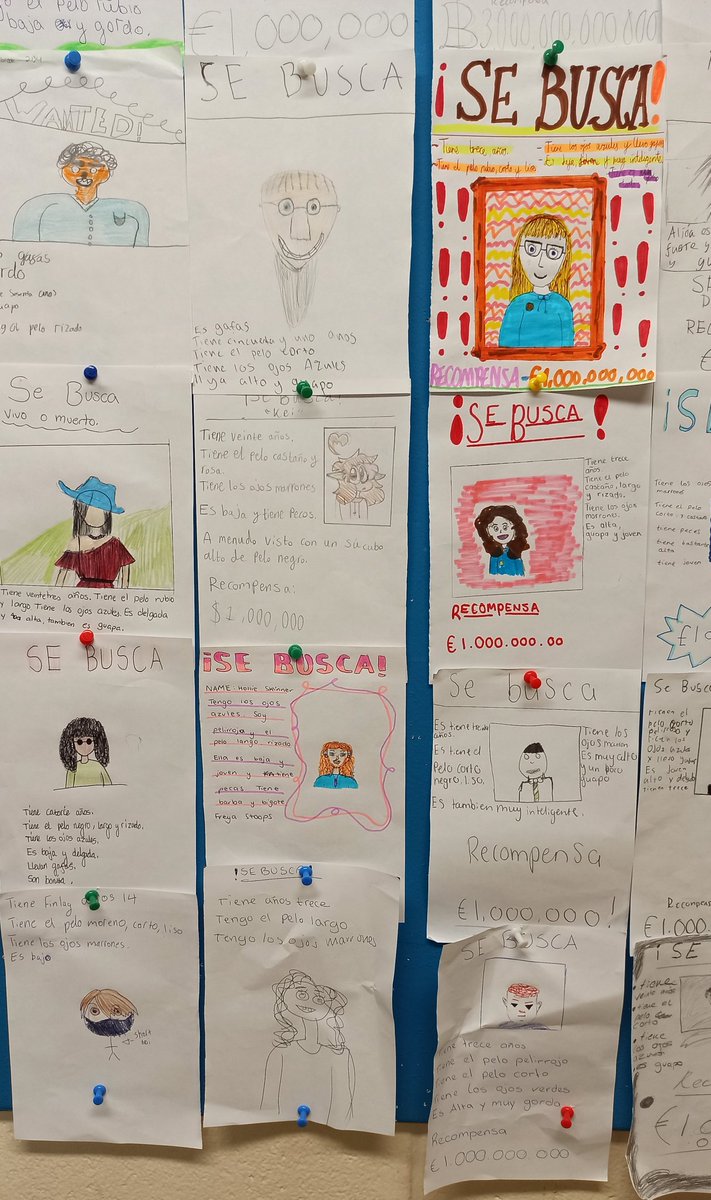 el pelo rubio
baja y gordo.
WANTED!
gafas
gordo
guapo
pelo rizado
Se Busca
Vivo o muerto.
Tiene ventetres años. Tiene el pelo rubio
y largo Tiene los ojos azules. Es delgada
alta, tambien es guapa.
SE BUSCA
Tiene catorce años.
Tiene el pelo negro, largo y rizado.
Tiene los ojos azules.
Es baja y delgida.
Llevan gafas.
Son bonita.
Tiene Finlay años 14
Tiene el pelo moreno, corto, liso
Tiene los ojos marrones.
Es bajo
€1,000,000
SE BUSCA
Es gafas
Tiene cincuenta y uno años
Tiene el pelo corto
Tiene los ojos Azules
alto y guapo
¡Se Busca!
"Kei"
Tiene veinte años,
Tiene el pelo castaño y
rosa.
Tiene los ojos marrones
Es baja y tiene Pecas.
A menudo visto con un súcubo
alto de Pelo negro.
Recompensa:
$1,000,000
¡SE BUSCA!
NAME: Hollie Skinner
Tengo los ojos
azules. Soy
pelirroja y el
pelo lango rizado
Ella es baja y
joven y tiene
pecas Tiene
barba y bigote
Freya Stoops
!SE BUSCA
Tiene años trece
Tengo el Pelo largo
Tengo los ojos marrones
¡SE BUSCA!
- Tiene trece años.
- Tiene los ojos azules y lleva gafas
- Tiene el pelo rubio, corto y liso
- Es baja, joven y muy inteligente
RECOMPENSA - €1,000,000,00
¡SE BUSCA!
Tiene trece
años.
Tiene el pelo
castaño, largo
y rizado.
Tiene los ojos
marrones.
Es alta,
guapa y joven
RECOMPENSA
€1.000.000.00
Se busca
Es tiene
años.
Es tiene el
Pelo corto
negro, liso.
Tiene los
ojos marron
Es muy alto
y un poco
guapo
Es tambien muy inteligente.
Recompensa
€1,000,000!
SE BUSCA
Tiene trece años
Tiene el pelo pelirrojo
Tiene el pelo corto
Tiene los ojos verdes
Es Alta y muy gordo
Recompensa
€1.000.000.000
Alicia
y
¡SE
Tiene los ojos
marrones
Tiene el pelo
corto y castaño
tiene pecas
tiene bastante
alta
tiene joven
Se Busca
Tienen el
pelo corto
pelirojo y
tienen los
ojos azules
Es joven
alto y
tiene trece
Recompensa
€1.000
¡SE
tiene
años
tiene el
pelo
corto
tiene
los ojos
es guapo